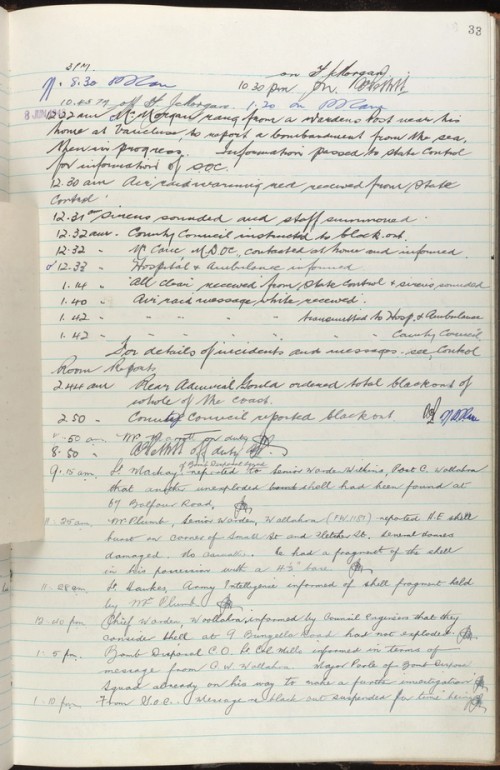 33
3 PM.
on J Morgan
8.30
10 30 pm
10.45 PM off St. J Morgan. 1.30 on
8 JUN 1942
12.27 am Mr Morgan rang from a wardens post near his
home at Vaucluse, to report a bombardment from the sea,
then in progress. Information passed to State Control
for information of GOC.
12.30 am Air raid warning red, received from State
Control.
12.31 am Sirens sounded and staff summoned.
12.32 am. County Council instructed to black out.
12.32 " Mr Care MDOC, contacted at home and informed.
12.33 " Hospital & Ambulance informed
1.14 " All clear received from State Control & sirens sounded
1.40 " Air raid message white received.
1.42 " " " " " transmitted to Hosp. & Ambulance
1.42 " " " " " County Council.
For details of incidents and messages. see Control
Room Reports
2.44 am Rear Admiral Gould ordered total blackout of
whole of the coast.
2.50 " County Council reported blackout.
8.50 am on duty
8.50 " off duty
9.15 am. Lt. Mackay of Bomb Disposal Squad reported to Senior Warden Wilkins, Post C. Woollahra
that another unexploded shell had been found at
67 Balfour Road.
11.25 am. Mr Plumb, Senior Warden, Woollahra reported H.E shell
burst on corner of Small St and Fletcher St. Several homes
damaged. No casualties. He had a fragment of the shell
in his possession with a 4.5" base
11.28 am. Lt. Hawkes, Army Intelligence informed of shell fragment held
by Mr Plumb.
12.40 pm Chief Warden, Woollahra, informed by Council Engineers that they
consider shell at 9 Bunyella Road had not exploded.
1.5 pm. Bomb Disposal C.O. Lt Col Mills informed in terms of
message from C.W. Woollahra. Major Poole of Bomb Disposal
Squad already on his way to make a further investigation.
1.10 pm. From G.O.C. Message re black out suspended for time being